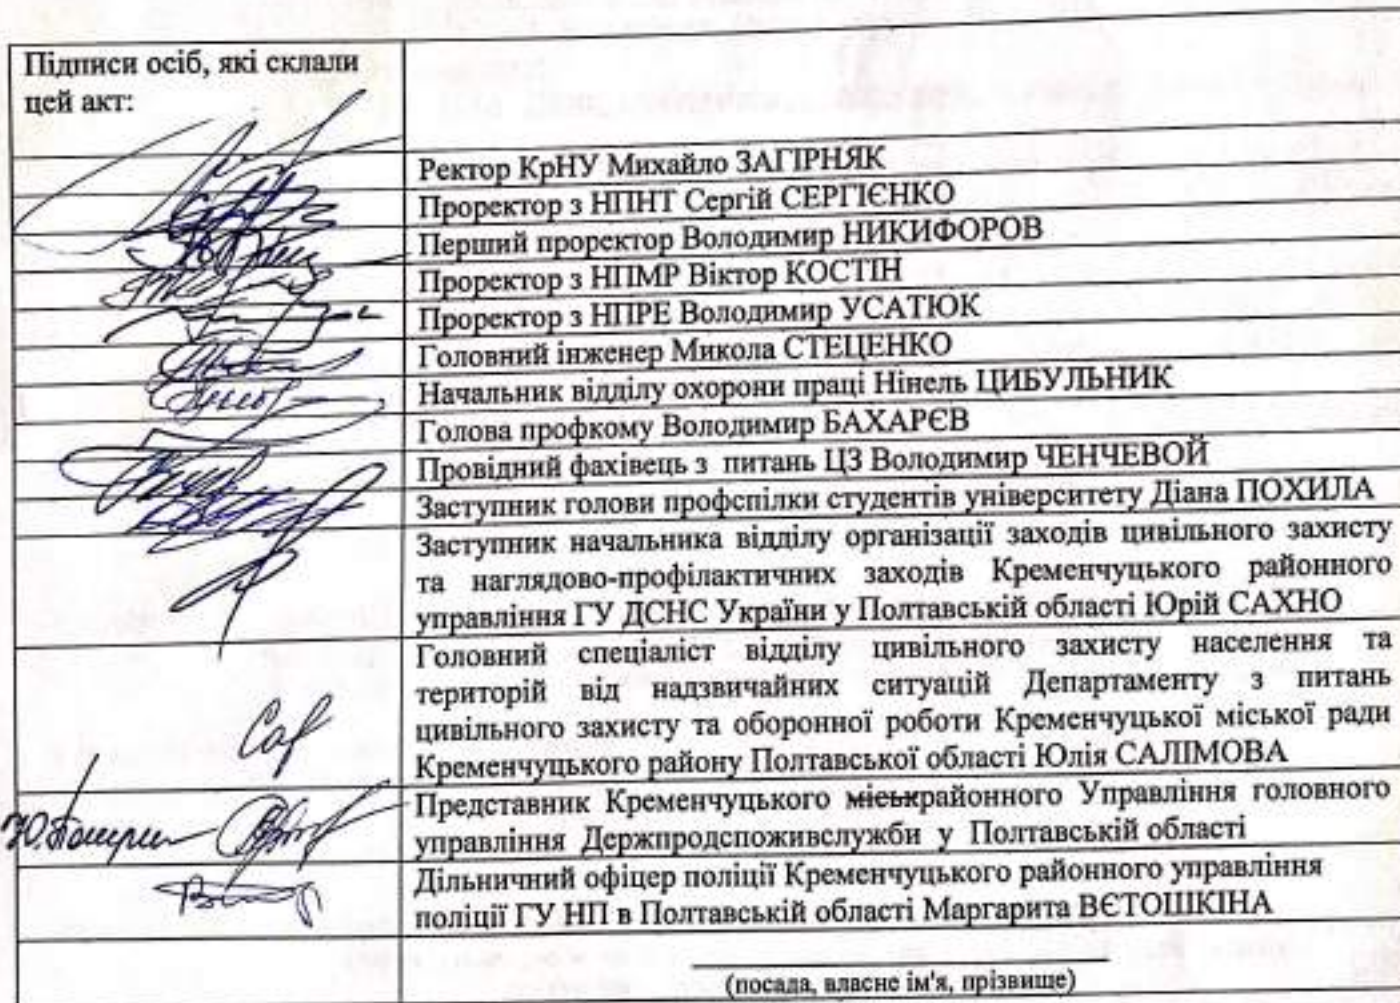 Підписи осіб, які склали
цей акт:
Ректор КрНУ Михайло ЗАГІРНЯК
Проректор з НПНТ Сергій СЕРГІЄНКО
Перший проректор Володимир НИКИФОРОВ
Проректор з НПМР Віктор КОСТІН
Проректор з НПРЕ Володимир УСАТЮК
Головний інженер Микола СТЕЦЕНКО
Начальник відділу охорони праці Нінель ЦИБУЛЬНИК
Голова профкому Володимир БАХАРЄВ
Провідний фахівець з питань ЦЗ Володимир ЧЕНЧЕВОЙ
Заступник голови профспілки студентів університету Діана ПОХИЛА
Заступник начальника відділу організації заходів цивільного захисту
та наглядово-профілактичних заходів Кременчуцького районного
управління ГУ ДСНС України у Полтавській області Юрій САХНО
Головний спеціаліст відділу цивільного захисту населення та
територій від надзвичайних ситуацій Департаменту з питань
цивільного захисту та оборонної роботи Кременчуцької міської ради
Кременчуцького району Полтавської області Юлія САЛІМОВА
Представник Кременчуцького міськрайонного Управління головного
управління Держпродспоживслужби у Полтавській області
Дільничний офіцер поліції Кременчуцького районного управління
поліції ГУ НП в Полтавській області Маргарита ВЄТОШКІНА
(посада, власне ім'я, прізвище)